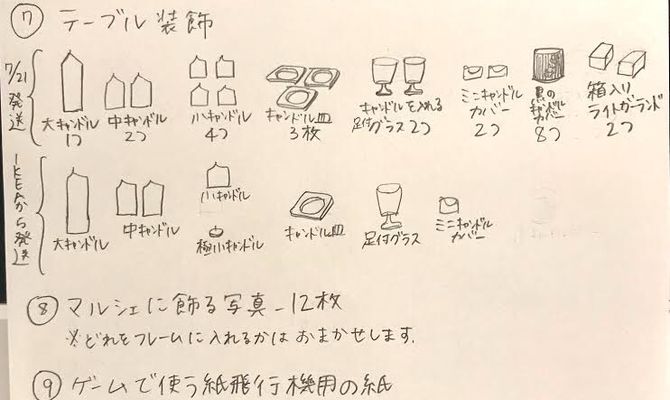 ⑦ テーブル装飾
7/21発送
大キャンドル 1つ
中キャンドル 2つ
小キャンドル 4つ
キャンドル皿 3枚
キャンドルを入れる足付グラス 2つ
ミニキャンドルカバー 2つ
黒のキャンドルカバー 8つ
箱入りライトガーランド 2つ
IKEAから発送
大キャンドル
中キャンドル
小キャンドル
極小キャンドル
キャンドル皿
足付グラス
ミニキャンドルカバー
⑧ マルシェに飾る写真_12枚
※どれをフレームに入れるかはおまかせします.
⑨ ゲームで使う紙飛行機用の紙